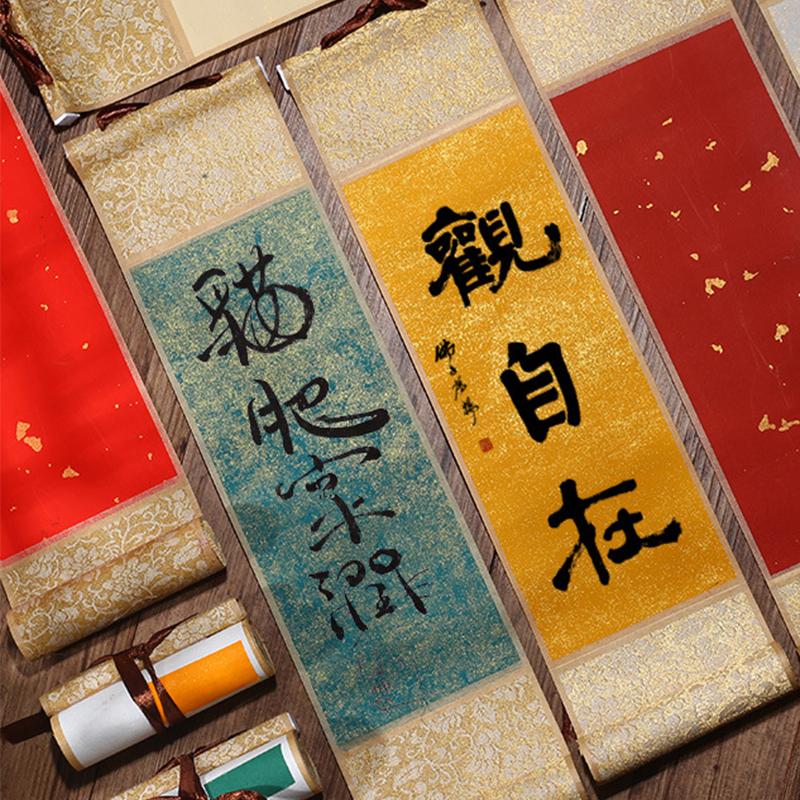 貓肥家潤
觀自在